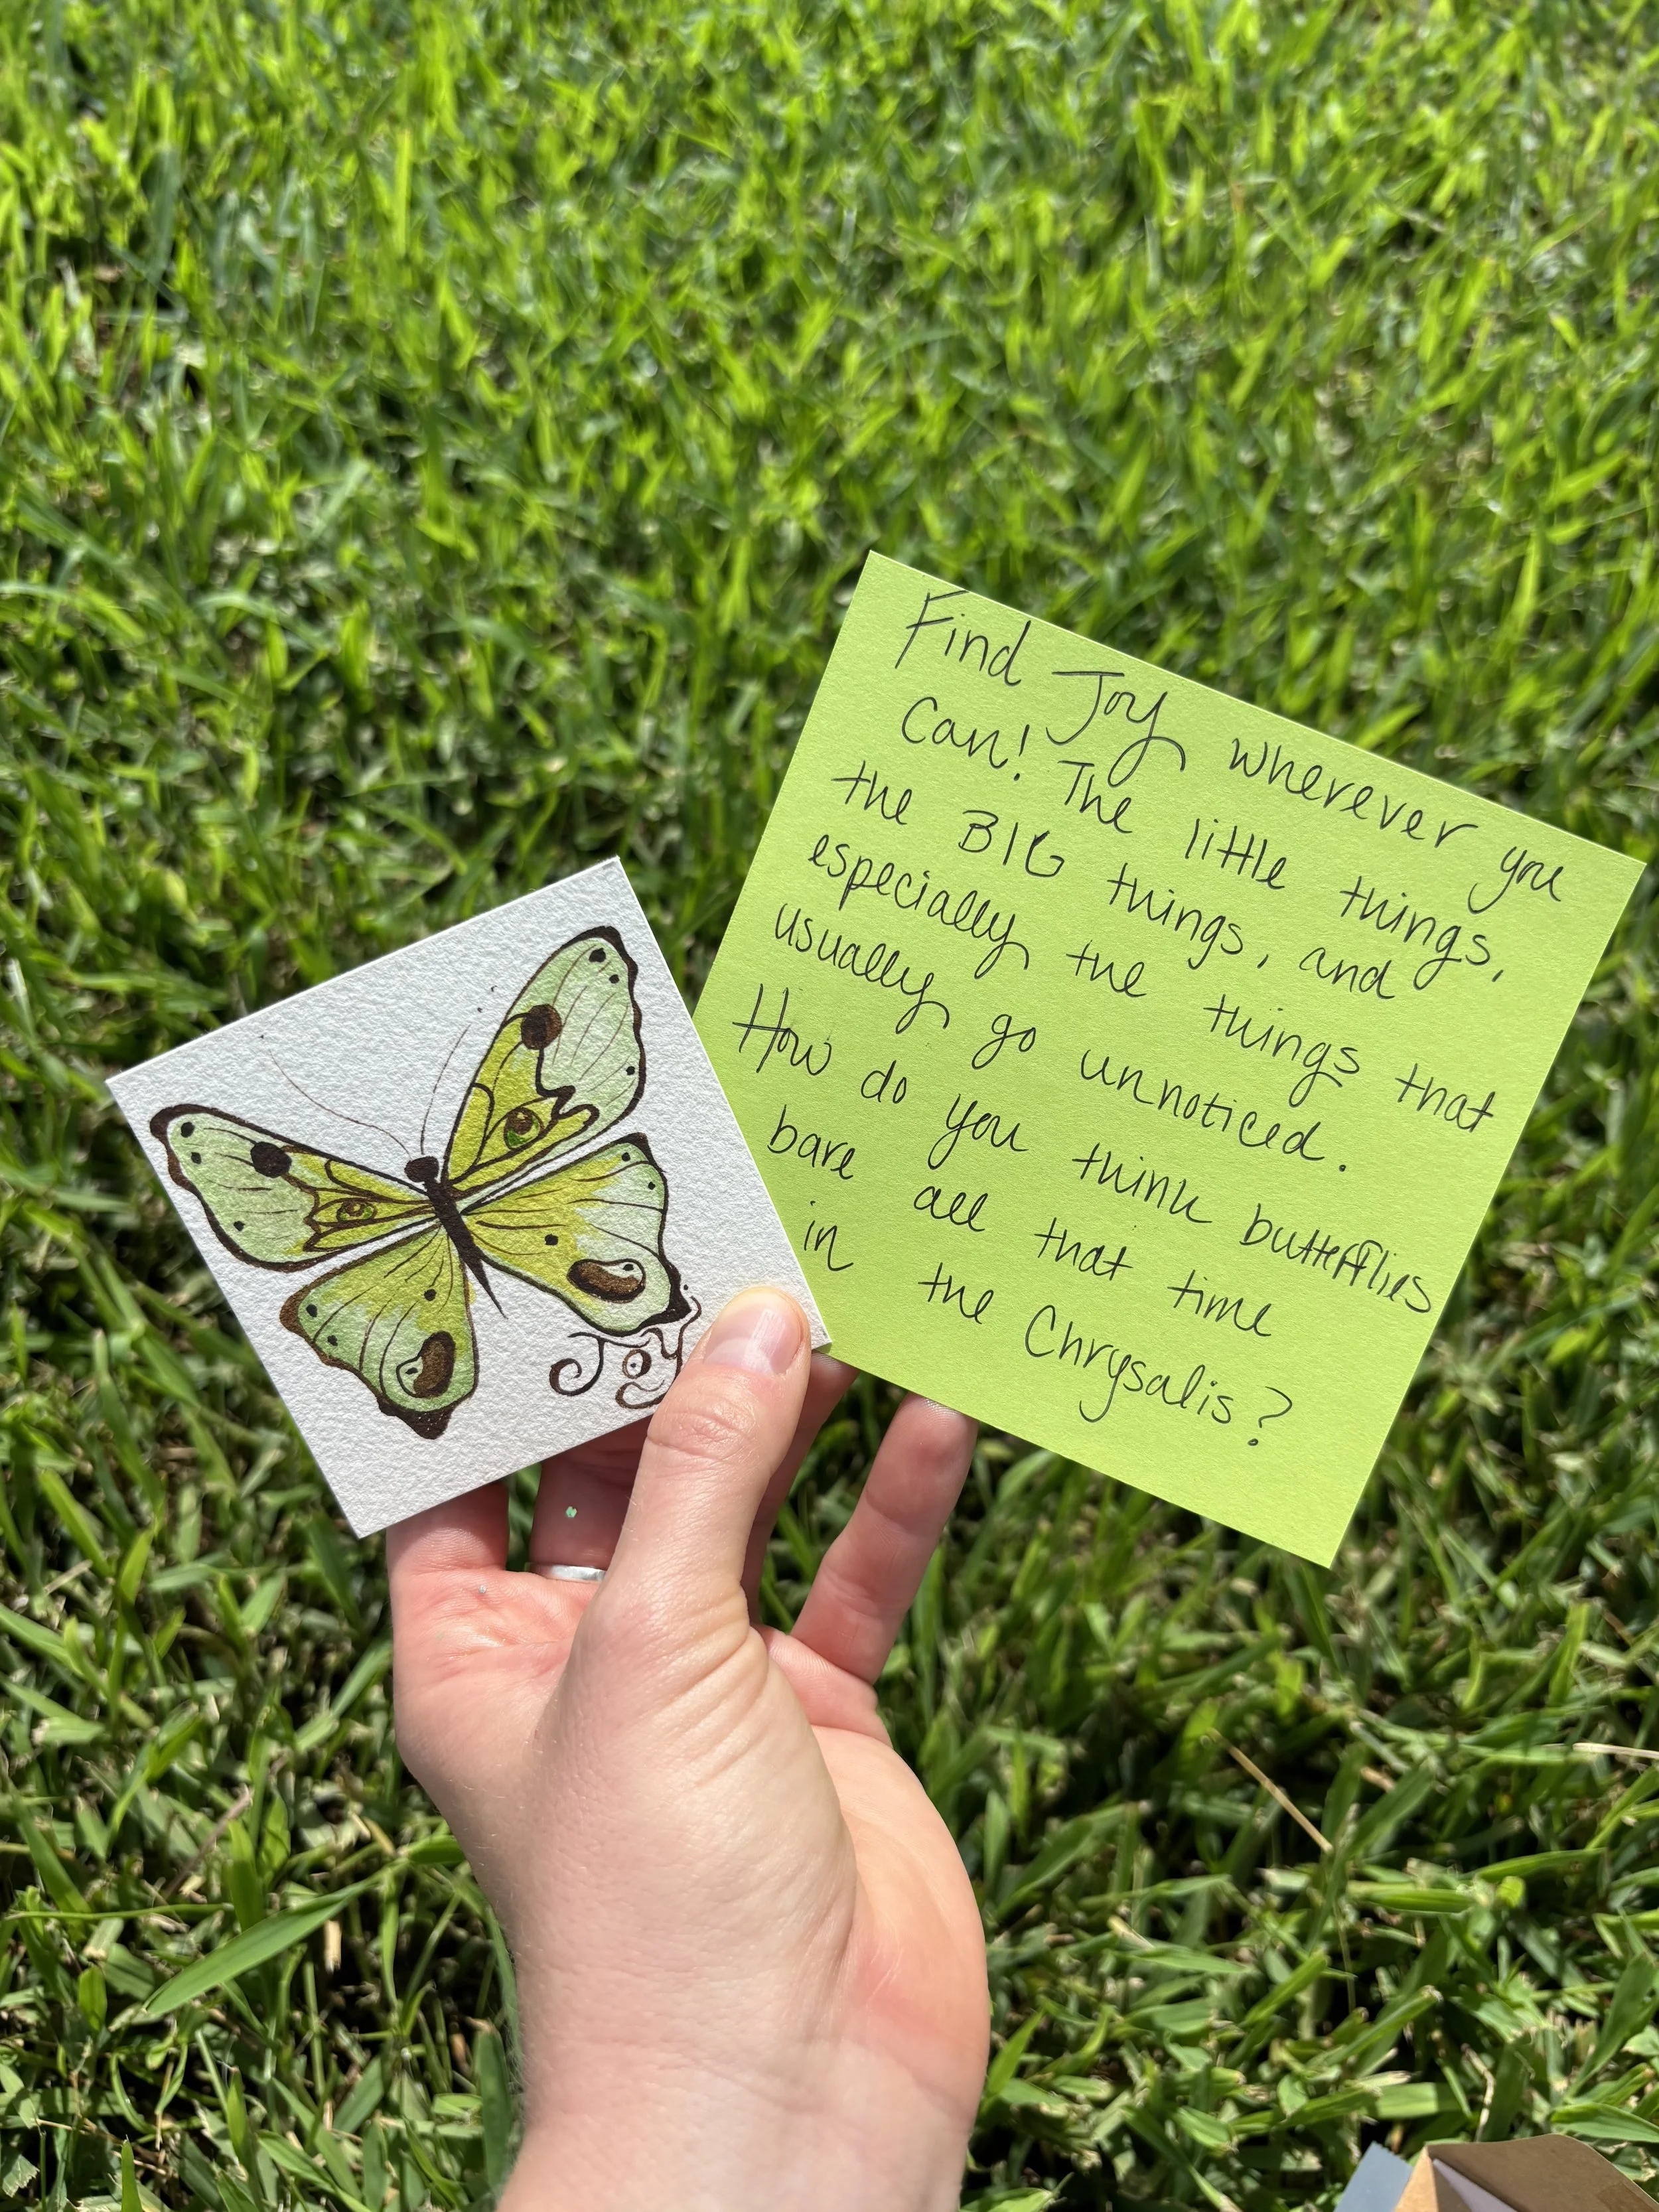 Joy
Find Joy wherever you
Can! The little things,
the BIG things, and
especially the things that
usually go unnoticed.
How do you think butterflies
bare all that time
in the Chrysalis?